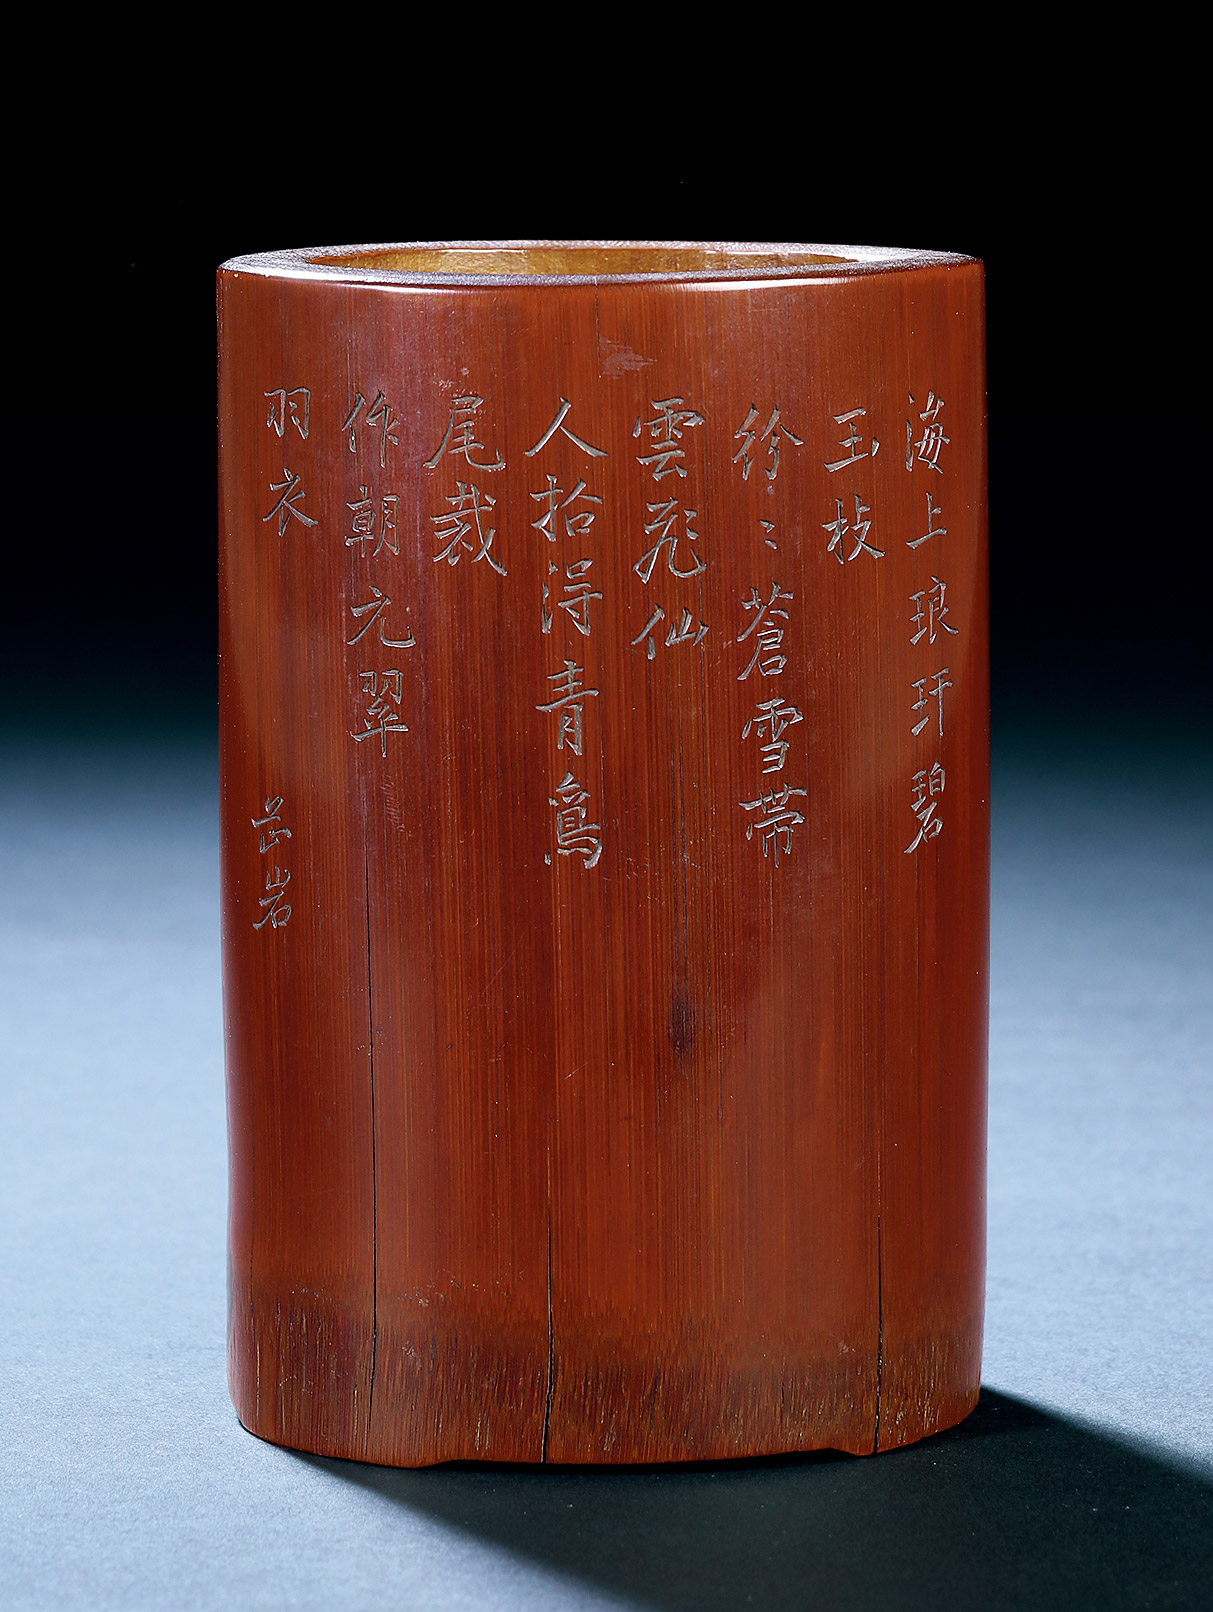 海上琅玕碧
玉枝
紛〻蒼雪帶
雲飛仙
人拾得青鳥
尾裁
作朝元翠
羽衣
芷岩